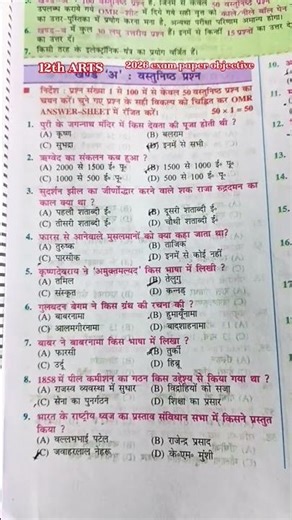 उपलब्ध कराये गये
का उत्तर-पुस्तिका में प्रयोग करना मना है, अन्यथा परीक्षा परिणाम अमान्य होगा।
6. खण्ड-ब में कुल 30 लघु उत्तरीय प्रश्न हैं। इनमें से किन्हीं 15 प्रश्नों का उत्तर देना
7. किसी तरह के इलेक्ट्रॉनिक-यंत्र का प्रयोग वर्जित है।
12th ARTS 2026 exam paper objective
खण्ड 'अ' : वस्तुनिष्ठ प्रश्न
निर्देश : प्रश्न संख्या 1 से 100 में से केवल 50 वस्तुनिष्ठ प्रश्न का
चयन करें। चुने गए प्रश्न के सही विकल्प को चिह्नित कर OMR
ANSWER-SHEET में रंजित करें। 50 x 1 = 50
1. पुरी के जगन्नाथ मंदिर में किस देवता की पूजा होती थी ?
(A) कृष्ण (B) बलराम
(C) सुभद्रा (D) इनमें से सभी
2. ऋग्वेद का संकलन कब हुआ ?
(A) 2000 से 1500 ई॰ पू॰ (B) 1500 से 1000 ई॰ पू॰
(C) 1000 से 500 ई॰ पू॰ (D) 500 से 100 ई॰ पू॰
3. सुदर्शन झील का जीर्णोद्धार करने वाले शक राजा रुद्रदमन का
काल क्या था ?
(A) पहली शताब्दी ई॰ (B) दूसरी शताब्दी ई॰
(C) तीसरी शताब्दी ई॰ (D) चौथी शताब्दी ई॰
4. फारस से आनेवाले मुसलमानों को क्या कहा जाता था ?
(A) तुरुष्क (B) ताजिक
(C) पारसीक (D) इनमें से कोई नहीं
5. कृष्णदेवराय ने 'अमुक्तमल्यद' किस भाषा में लिखी ?
(A) तमिल (B) तेलुगु
(C) संस्कृत (D) कन्नड़
6. गुलबदन बेगम ने किस ग्रंथ की रचना की ?
(A) बाबरनामा (B) हुमायूँनामा
(C) आलमगीरनामा (D) बादशाहनामा
7. बाबर ने बाबरनामा किस भाषा में लिखा ?
(A) फारसी (B) तुर्की
(C) उर्दू (D) हिब्रू
8. 1858 में पील कमीशन का गठन किस उद्देश्य से किया गया था ?
(A) राजस्व व्यवस्था में सुधार (B) विद्रोहियों को सजा
(C) सेना का पुनर्गठन (D) शिक्षा का प्रसार
9. भारत के राष्ट्रीय ध्वज का प्रस्ताव संविधान सभा में किसने प्रस्तुत
किया ?
(A) वल्लभभाई पटेल (B) राजेन्द्र प्रसाद
(C) जवाहरलाल नेहरू (D) के॰एम॰ मुंशी